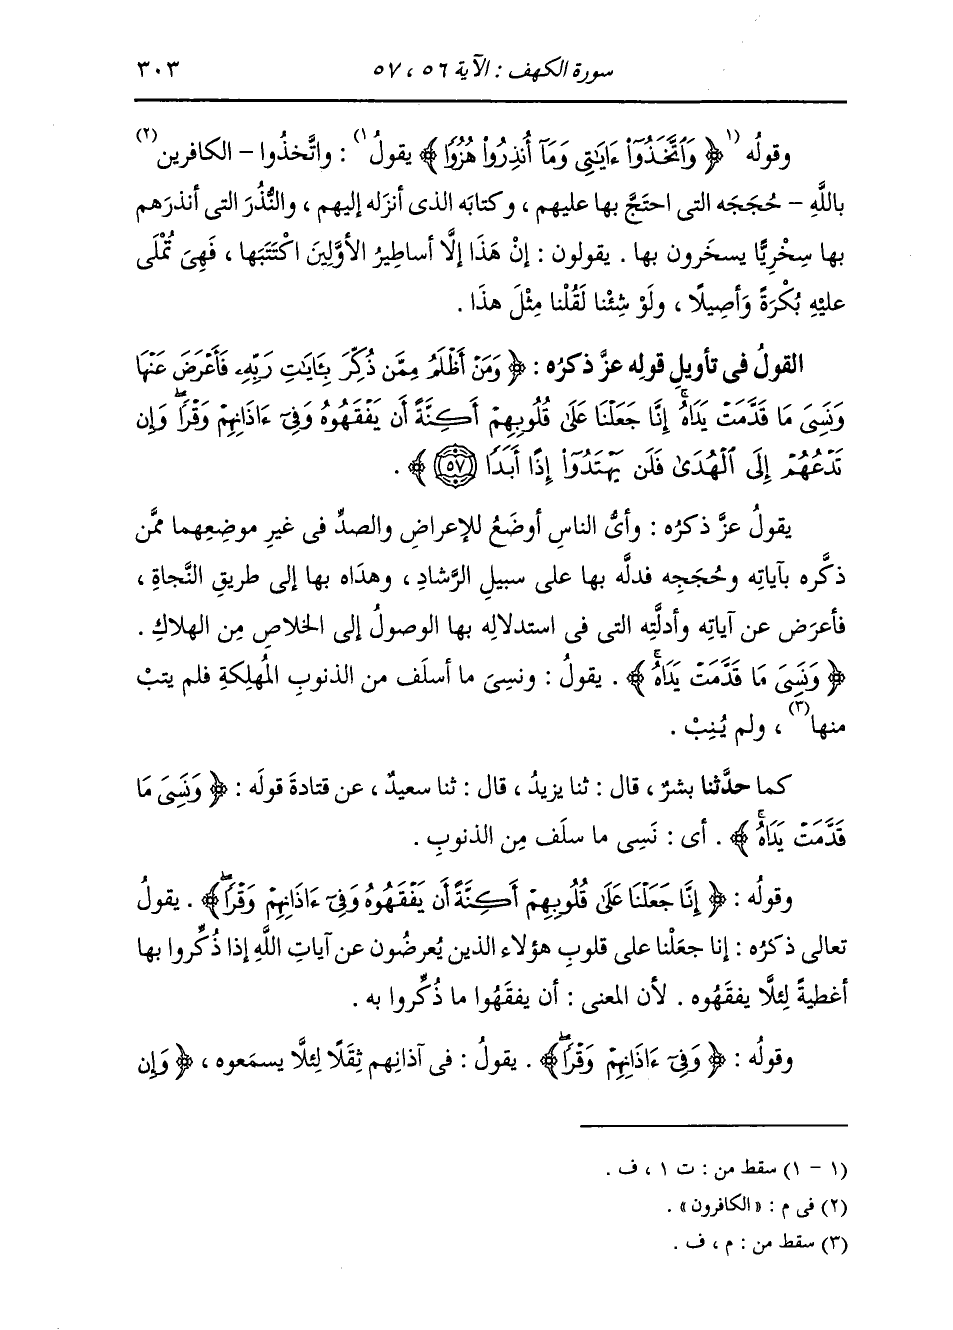 سورة الكهف : الآية ٥٦ ، ٥٧ ٣٠٣
وقولُه (١﴿ وَٱتَّخَذُوٓا۟ ءَايَٰتِى وَمَآ أُنذِرُوا۟ هُزُوًا ﴾ يقولُ١) : واتَّخذُوا – الكافرين(٢)
باللَّهِ – حُجَجَه التى احتَجَّ بها عليهم ، وكتابَه الذى أنزَله إليهم ، والنُّذُرَ التى أنذرَهم
بها سِخْرِيًّا يسخَرون بها . يقولون : إنْ هَذَا إلَّا أساطِيرُ الأوَّلِينَ اكْتَتَبَها ، فَهِىَ تُمْلَى
عليْهِ بُكْرَةً وَأصِيلًا ، ولَوْ شِئْنا لَقُلْنا مِثْلَ هذَا .
القولُ فى تأويلِ قولِه عزَّ ذكرُه : ﴿ وَمَنْ أَظْلَمُ مِمَّن ذُكِّرَ بِـَٔايَٰتِ رَبِّهِۦ فَأَعْرَضَ عَنْهَا
وَنَسِىَ مَا قَدَّمَتْ يَدَاهُ ۚ إِنَّا جَعَلْنَا عَلَىٰ قُلُوبِهِمْ أَكِنَّةً أَن يَفْقَهُوهُ وَفِىٓ ءَاذَانِهِمْ وَقْرًا ۖ وَإِن
تَدْعُهُمْ إِلَى ٱلْهُدَىٰ فَلَن يَهْتَدُوٓا۟ إِذًا أَبَدًا ٥٧ ﴾ .
يقولُ عزَّ ذكرُه : وأىُّ الناسِ أوضَعُ للإعراضِ والصدِّ فى غيرِ موضِعِهما ممَّن
ذكَّره بآياتِه وحُجَجِه فدلَّه بها على سبيلِ الرَّشادِ ، وهدَاه بها إلى طريقِ النَّجاةِ ،
فأعرَض عن آياتِه وأدلَّتِه التى فى استدلالِه بها الوصولُ إلى الخلاصِ مِن الهلاكِ .
﴿ وَنَسِىَ مَا قَدَّمَتْ يَدَاهُ ۚ ﴾ . يقولُ : ونسِىَ ما أسلَف من الذنوبِ المُهلِكةِ فلم يتبْ
منها(٣) ، ولم يُنِبْ .
كما حدَّثنا بشرٌ ، قال : ثنا يزيدُ ، قال : ثنا سعيدٌ ، عن قتادةَ قولَه : ﴿ وَنَسِىَ مَا
قَدَّمَتْ يَدَاهُ ۚ ﴾ . أى : نَسِى ما سلَف مِن الذنوبِ .
وقولُه : ﴿ إِنَّا جَعَلْنَا عَلَىٰ قُلُوبِهِمْ أَكِنَّةً أَن يَفْقَهُوهُ وَفِىٓ ءَاذَانِهِمْ وَقْرًا ۖ ﴾ . يقولُ
تعالى ذكرُه : إنا جعَلْنا على قلوبِ هؤلاء الذين يُعرضُون عن آياتِ اللَّهِ إذا ذُكِّروا بها
أغطيةً لِئلَّا يفقَهُوه . لأن المعنى : أن يفقَهُوا ما ذُكِّروا به .
وقولُه : ﴿ وَفِىٓ ءَاذَانِهِمْ وَقْرًا ۖ ﴾ . يقولُ : فى آذانِهم ثِقَلًا لِئلَّا يسمَعوه ، ﴿ وَإِن
(١ – ١) سقط من : ت ١ ، ف .
(٢) فى م : «الكافرون» .
(٣) سقط من : م ، ف .